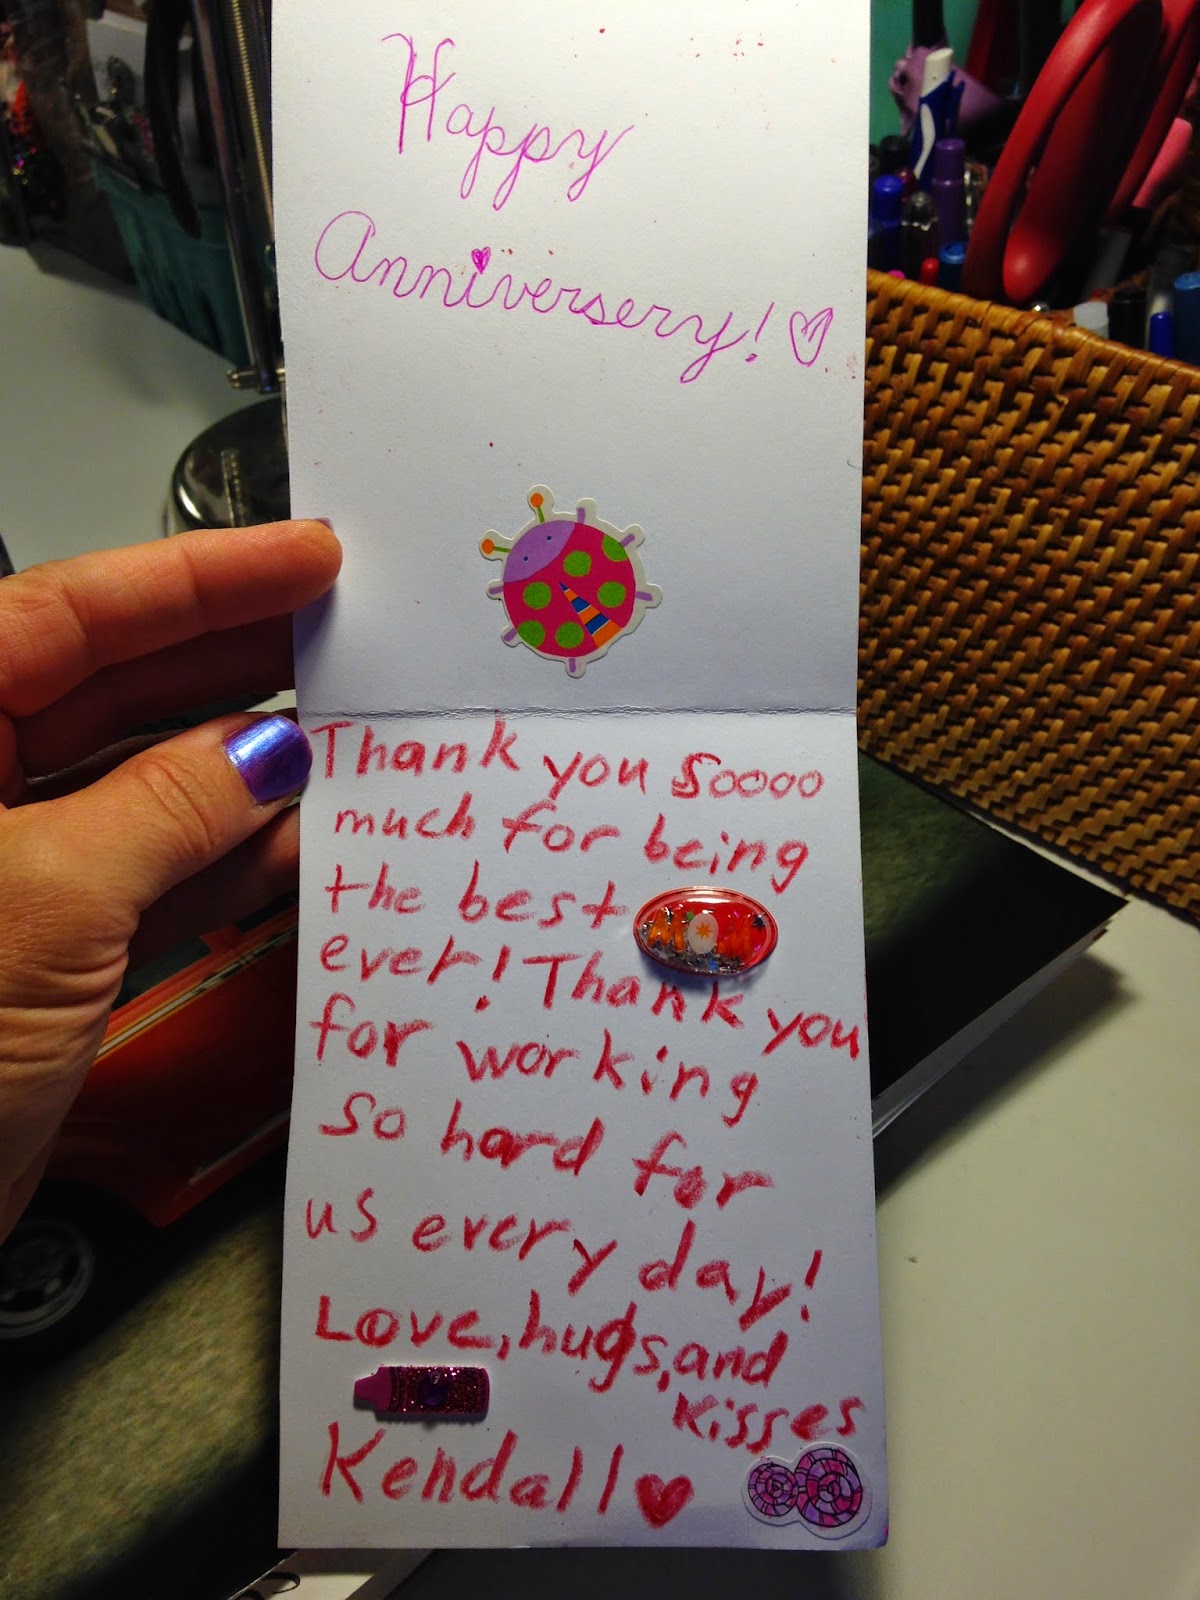 Happy
Anniversery! ♡
Thank you Soooo
much for being
the best MOM
ever! Thank you
for working
so hard for
us every day!
Love, hugs, and
kisses
Kendall ♥